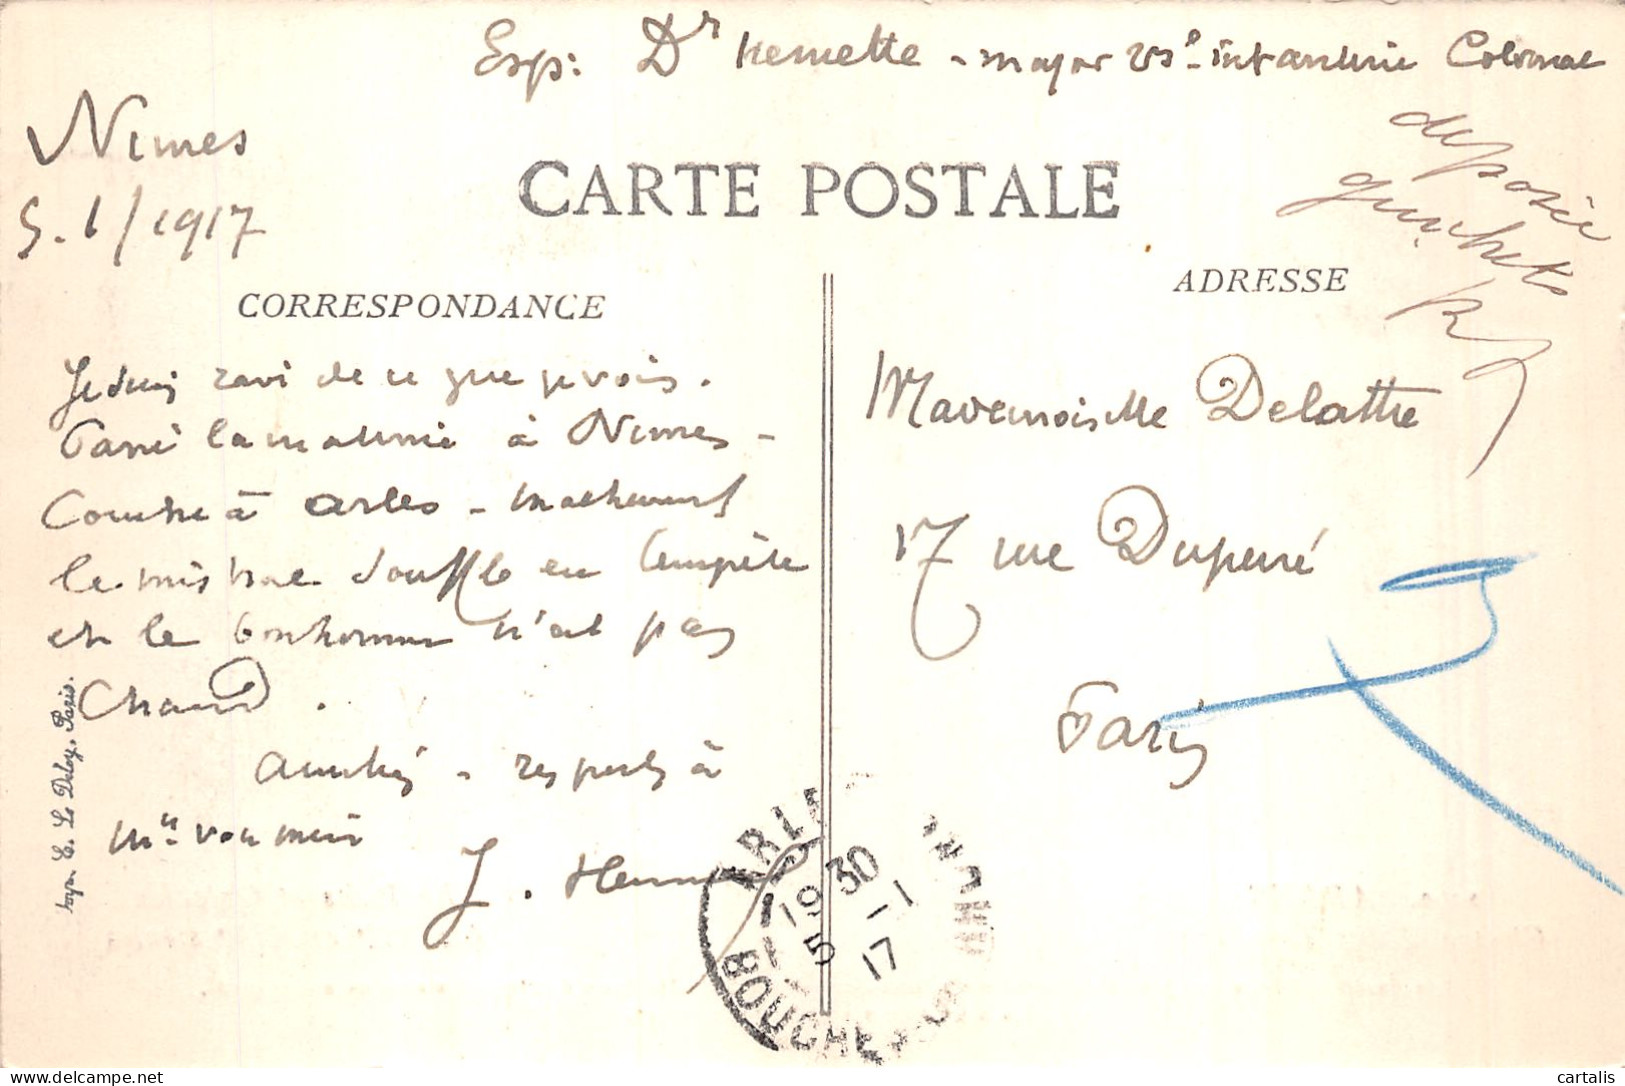 Exp: Dr Hemette - major 23e infanterie Colonial
Nimes
5.1/1917
déposée
guichet
CARTE POSTALE
CORRESPONDANCE
ADRESSE
Je suis ravi de ce que je vois.
Passé la matinée à Nimes -
Couche à Arles - malheureust
le mistral souffle en tempête
et le bonhomme n'est pas
Chaud.
Amitiés - respects à
J. Hem
Mademoiselle Delattre
17 rue Duperré
Paris
ARLES
19 30
5 -1
17
BOUCHES DU RHONE
Imp. E. Le Deley, Paris.
cartalis